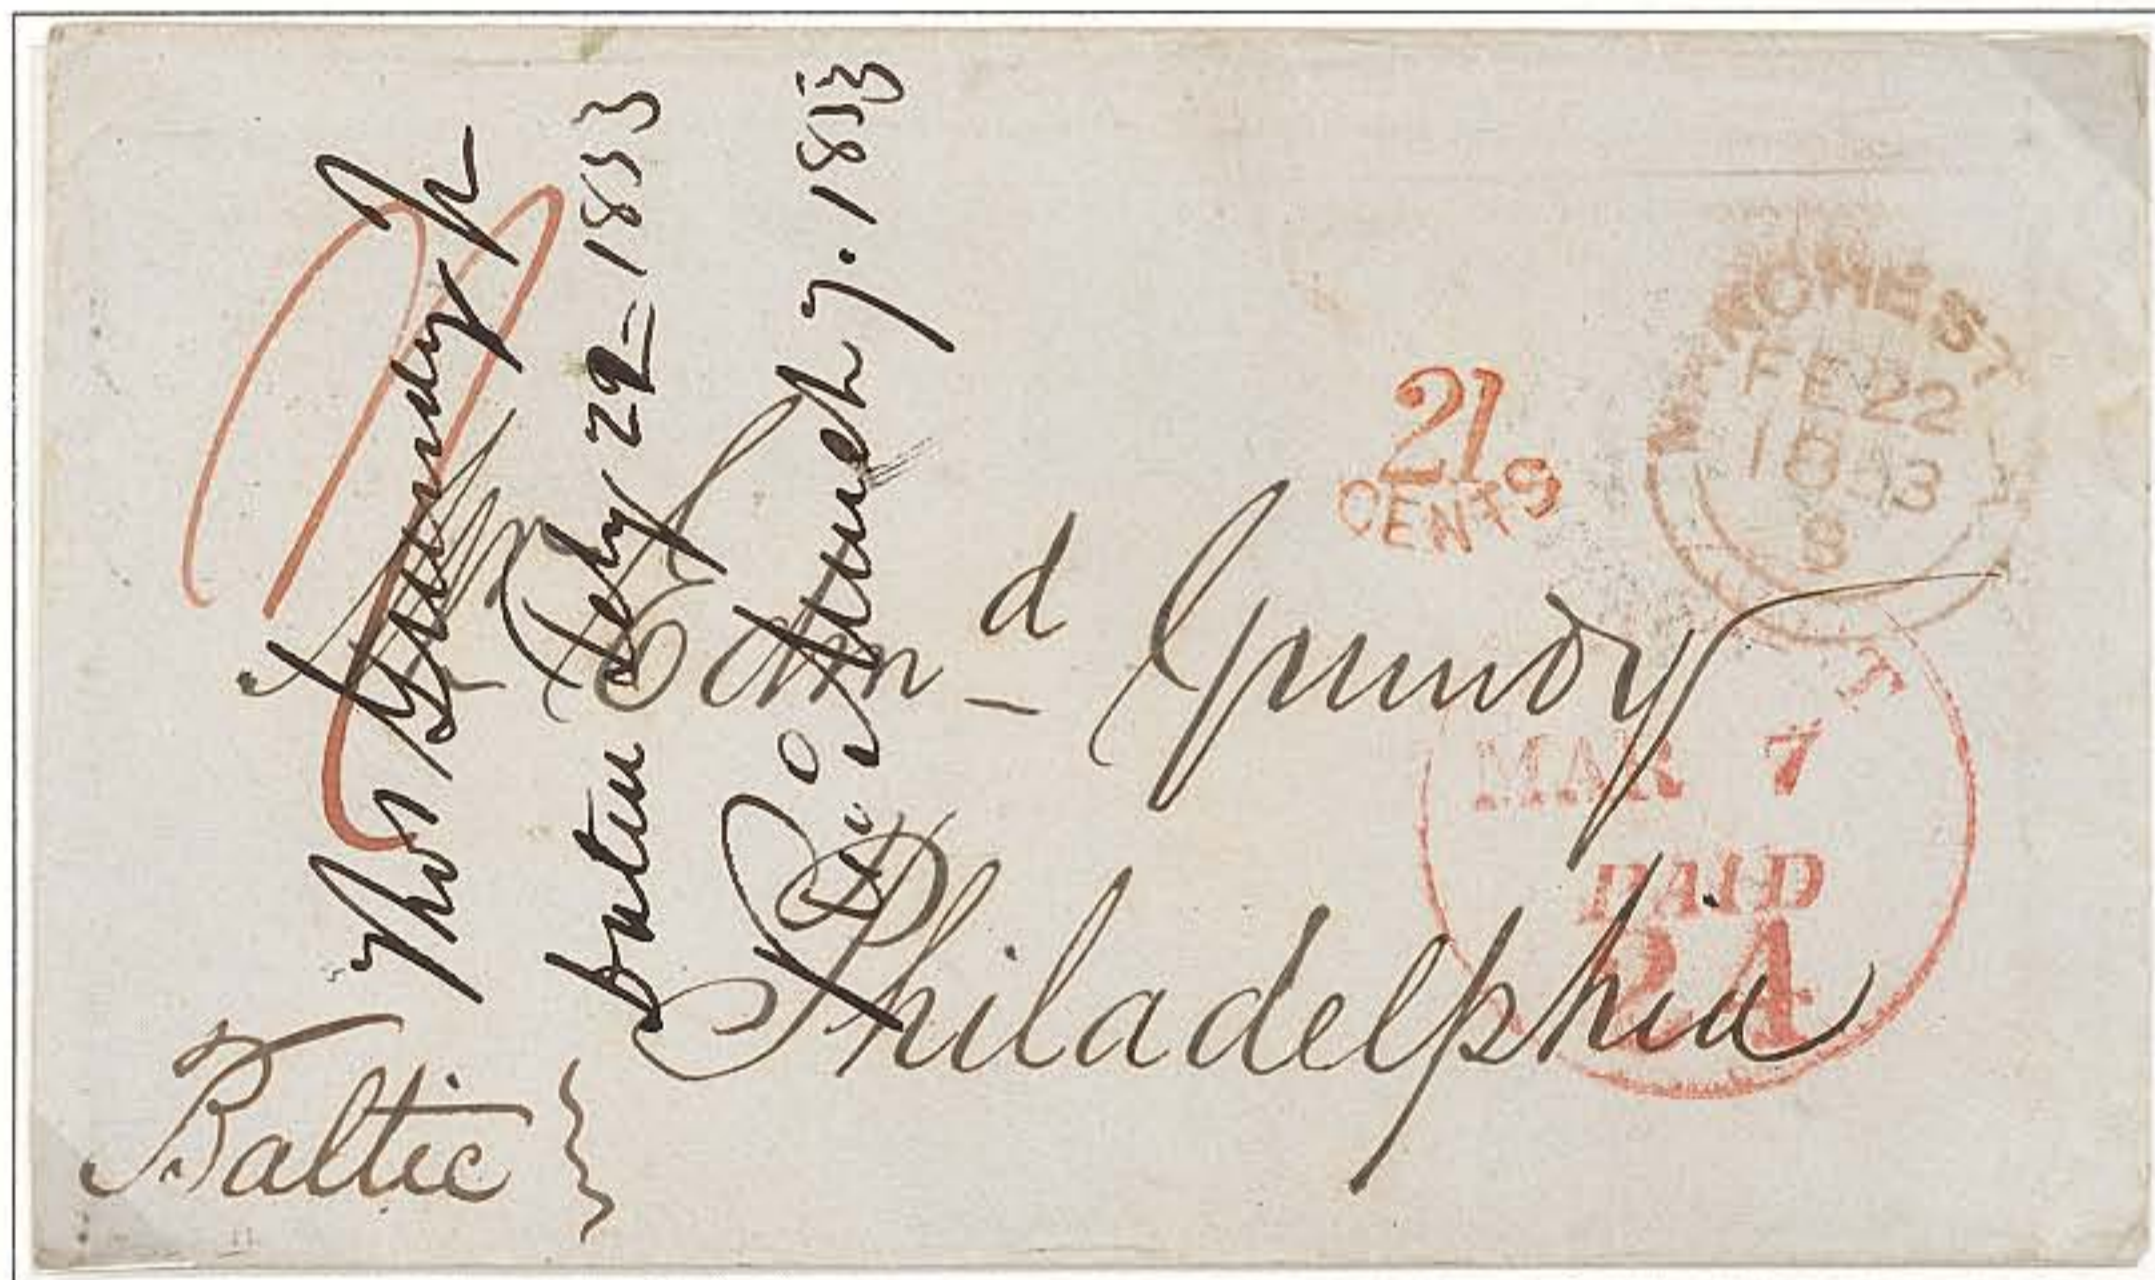 Thos Grundy Jr
Feby 22 = 1853
March 7. 1853
21
CENTS
MANCHEST
FE 22
1853
S
Edm^d Grundy
Philadelphia
T
MAR 7
PAID
24
Baltic